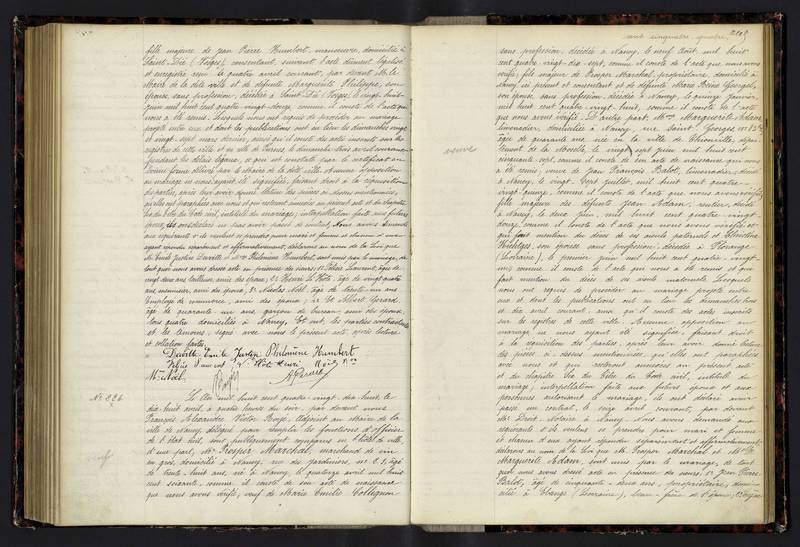 fille majeure de Jean Pierre Humbert, manœuvre, domicilié à
Saint-Dié (Vosges) consentant, suivant l'acte dûment légalisé
et enregistré reçu le quatre avril courant, par devant M. le
Maire de la dite ville et de défunte Marguerite Philippe, son
épouse, sans profession, décédée à Saint-Dié (Vosges) le vingt-huit
juin mil huit cent quatre-vingt-douze, comme il conste de l'acte qui
nous a été remis. Lesquels nous ont requis de procéder au mariage
projeté entre eux et dont les publications ont eu lieu les dimanches vingt
et vingt-sept mars dernier, ainsi qu'il conste des actes inscrits sur les
registres de cette ville et en celle de le dimanche trois avril courant
pendant les délais légaux, ce qui est constaté par le certificat en
bonne forme délivré par le Maire de la dite ville. Aucune opposition
au mariage ne nous ayant été signifiée, faisant droit à la réquisition
des parties, après leur avoir donné lecture des pièces ci-dessus mentionnées,
qu'elles ont paraphées avec nous et qui resteront annexées au présent acte et du chapitre
six du titre du Code civil, intitulé du mariage; interpellation faite aux futurs
époux, ils ont déclaré ne pas avoir passé de contrat, Nous avons demandé
aux requérants s'ils veulent se prendre pour mari et femme et chacun d'eux
ayant répondu séparément et affirmativement, déclarons au nom de la Loi que
M. Emile Justin Deville et Mlle Philomène Humbert, sont unis par le mariage, de
tout quoi nous avons dressé acte en présence des sieurs; 1° Félicien Laurent, âgé de
vingt deux ans, tailleur, amis des époux; 2° Henri L'Hôte, âgé de vingt quatre
ans, menuisier, ami des époux; 3° Nicolas Noël âgé de trente-un ans
Employé de commerce, ami des époux; 4° Albert Gérard
âgé de quarante-un ans, garçon de bureau; ami des époux,
tous quatre domiciliés à Nancy, Et ont, les parties contractantes
et les témoins, signé avec nous le présent acte, après lecture
et collation faites.
Deville Emile Justin Philomène Humbert
L'Hôte Henri Noël Nas
Mme Noël A Gérard
N° 226
veuf
L'An mil huit cent quatre-vingt-dix-huit, le
dix-huit avril, à quatre heures du soir, par devant nous
François Alexandre Victor Adjoint au Maire de la
ville de Nancy, délégué pour remplir les fonctions d'officier
de l'état civil, sont publiquement comparus en l'hôtel de ville,
d'une part, Mr Prosper Marchal, marchand de vin
en gros, domicilié à Nancy, rue des Jardiniers, n° 8, âgé
de trente-huit ans, né à Nancy, le quatorze avril mil huit
cent soixante, comme il conste de son acte de naissance
que nous avons vérifié, veuf de Marie Emilie Collignon
cent cinquante quatre
sans profession, décédée à Nancy, le neuf août mil huit
cent quatre-vingt-dix-sept, comme il conste de l'acte que nous avons
vérifié, fils majeur de Prosper Marchal, propriétaire, domicilié à
Nancy, ici présent et consentant et de défunte Marie Reine Georgel,
son épouse, sans profession, décédée à Nancy, le quinze Janvier
mil huit cent quatre-vingt-huit, comme il conste de l'acte
que nous avons vérifié. D'autre part Mme Marguerite Adam,
limonadier, domiciliée à Nancy, rue Saint-Georges n°
âgée de quarante ans, née en la ville de Thionville, dépar-
tement de la Moselle, le vingt-sept Juin mil huit cent
cinquante-sept, comme il conste de son acte de naissance qui nous
a été remis, veuve de Jean François Balot, limonadier, décédé
à Nancy, le vingt-sept juillet mil huit cent quatre-
vingt-quinze, comme il conste de l'acte que nous avons vérifié,
fille majeure des défunts Jean Adam, rentier, décédé
à Nancy, le deux Juin, mil huit cent quatre-vingt-
douze comme il conste de l'acte que nous avons vérifié et
qui fait mention du décès de ses aïeuls paternels et Clémentine
son épouse sans profession, décédée à Florange
(Lorraine), le premier Juin mil huit cent quatre-vingt-
un, comme il conste de l'acte qui nous a été remis et qui
fait mention du décès de ses aïeuls maternels. Lesquels
nous ont requis de procéder au mariage projeté entre
eux et dont les publications ont eu lieu les dimanches trois
et dix avril courant, ainsi qu'il conste des actes inscrits
sur les registres de cette ville. Aucune opposition au
mariage ne nous ayant été signifiée, faisant droit
à la réquisition des parties, après leur avoir donné lecture
des pièces ci-dessus mentionnées, qu'elles ont paraphées
avec nous et qui resteront annexées au présent acte et
du chapitre six du titre du Code civil, intitulé du
mariage; interpellation faite aux futurs époux et aux
personnes autorisant le mariage, ils ont déclaré avoir
passé un contrat, le seize avril courant, par devant
Me Droit Notaire à Nancy. Nous avons demandé aux
requérants s'ils veulent se prendre pour mari et femme
et chacun d'eux ayant répondu séparément et affirmativement,
déclarons au nom de la Loi que M. Prosper Marchal et Mme
Marguerite Adam, sont unis par le mariage, de tout
quoi nous avons dressé acte en présence des sieurs, 1° Jean Pierre
Balot, âgé de cinquante-deux ans, propriétaire, domi-
cilié à Elange (Lorraine), beau-frère de l'épouse; 2°
veuve